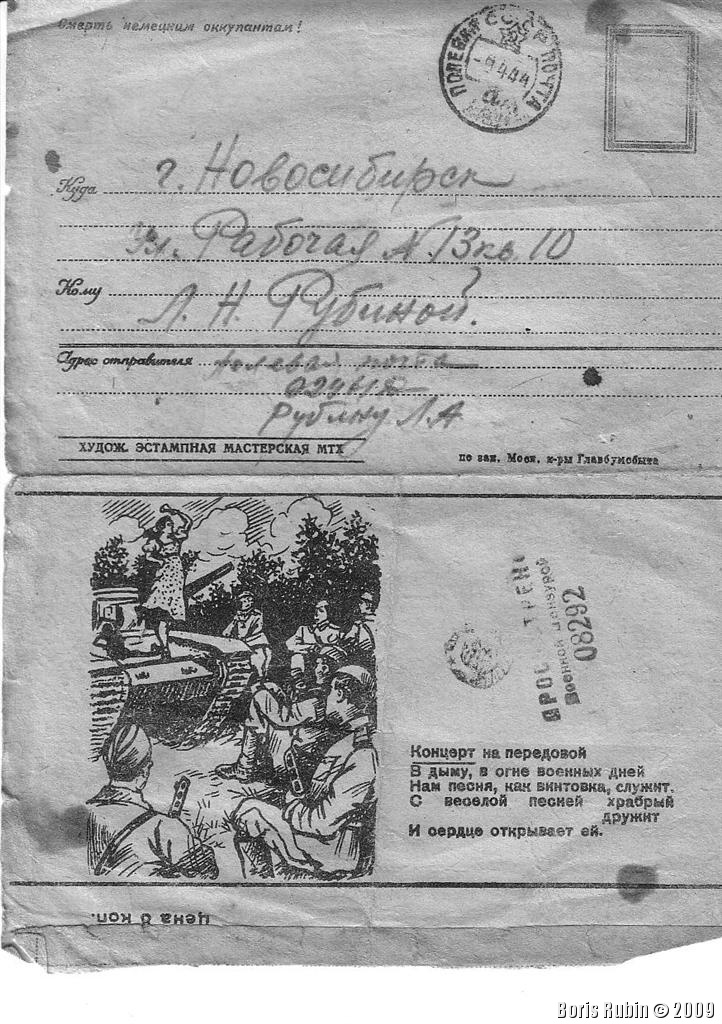 Смерть немецким оккупантам!
ПОЛЕВАЯ ПОЧТА
СССР
-9 4 44
Куда г. Новосибирск
ул. Рабочая N 13 кв 10
Кому
Л. Н. Рубиной.
Адрес отправителя полевая почта
Рубину Л А
ХУДОЖ. ЭСТАМПНАЯ МАСТЕРСКАЯ МТХ
по зак. Моск. к-ры Главбумсбыта
Военной цензурой
08292
Концерт на передовой
В дыму, в огне военных дней
Нам песня, как винтовка, служит.
С веселой песней храбрый
дружит
И сердце открывает ей.
Цена 8 коп.
Boris Rubin © 2009